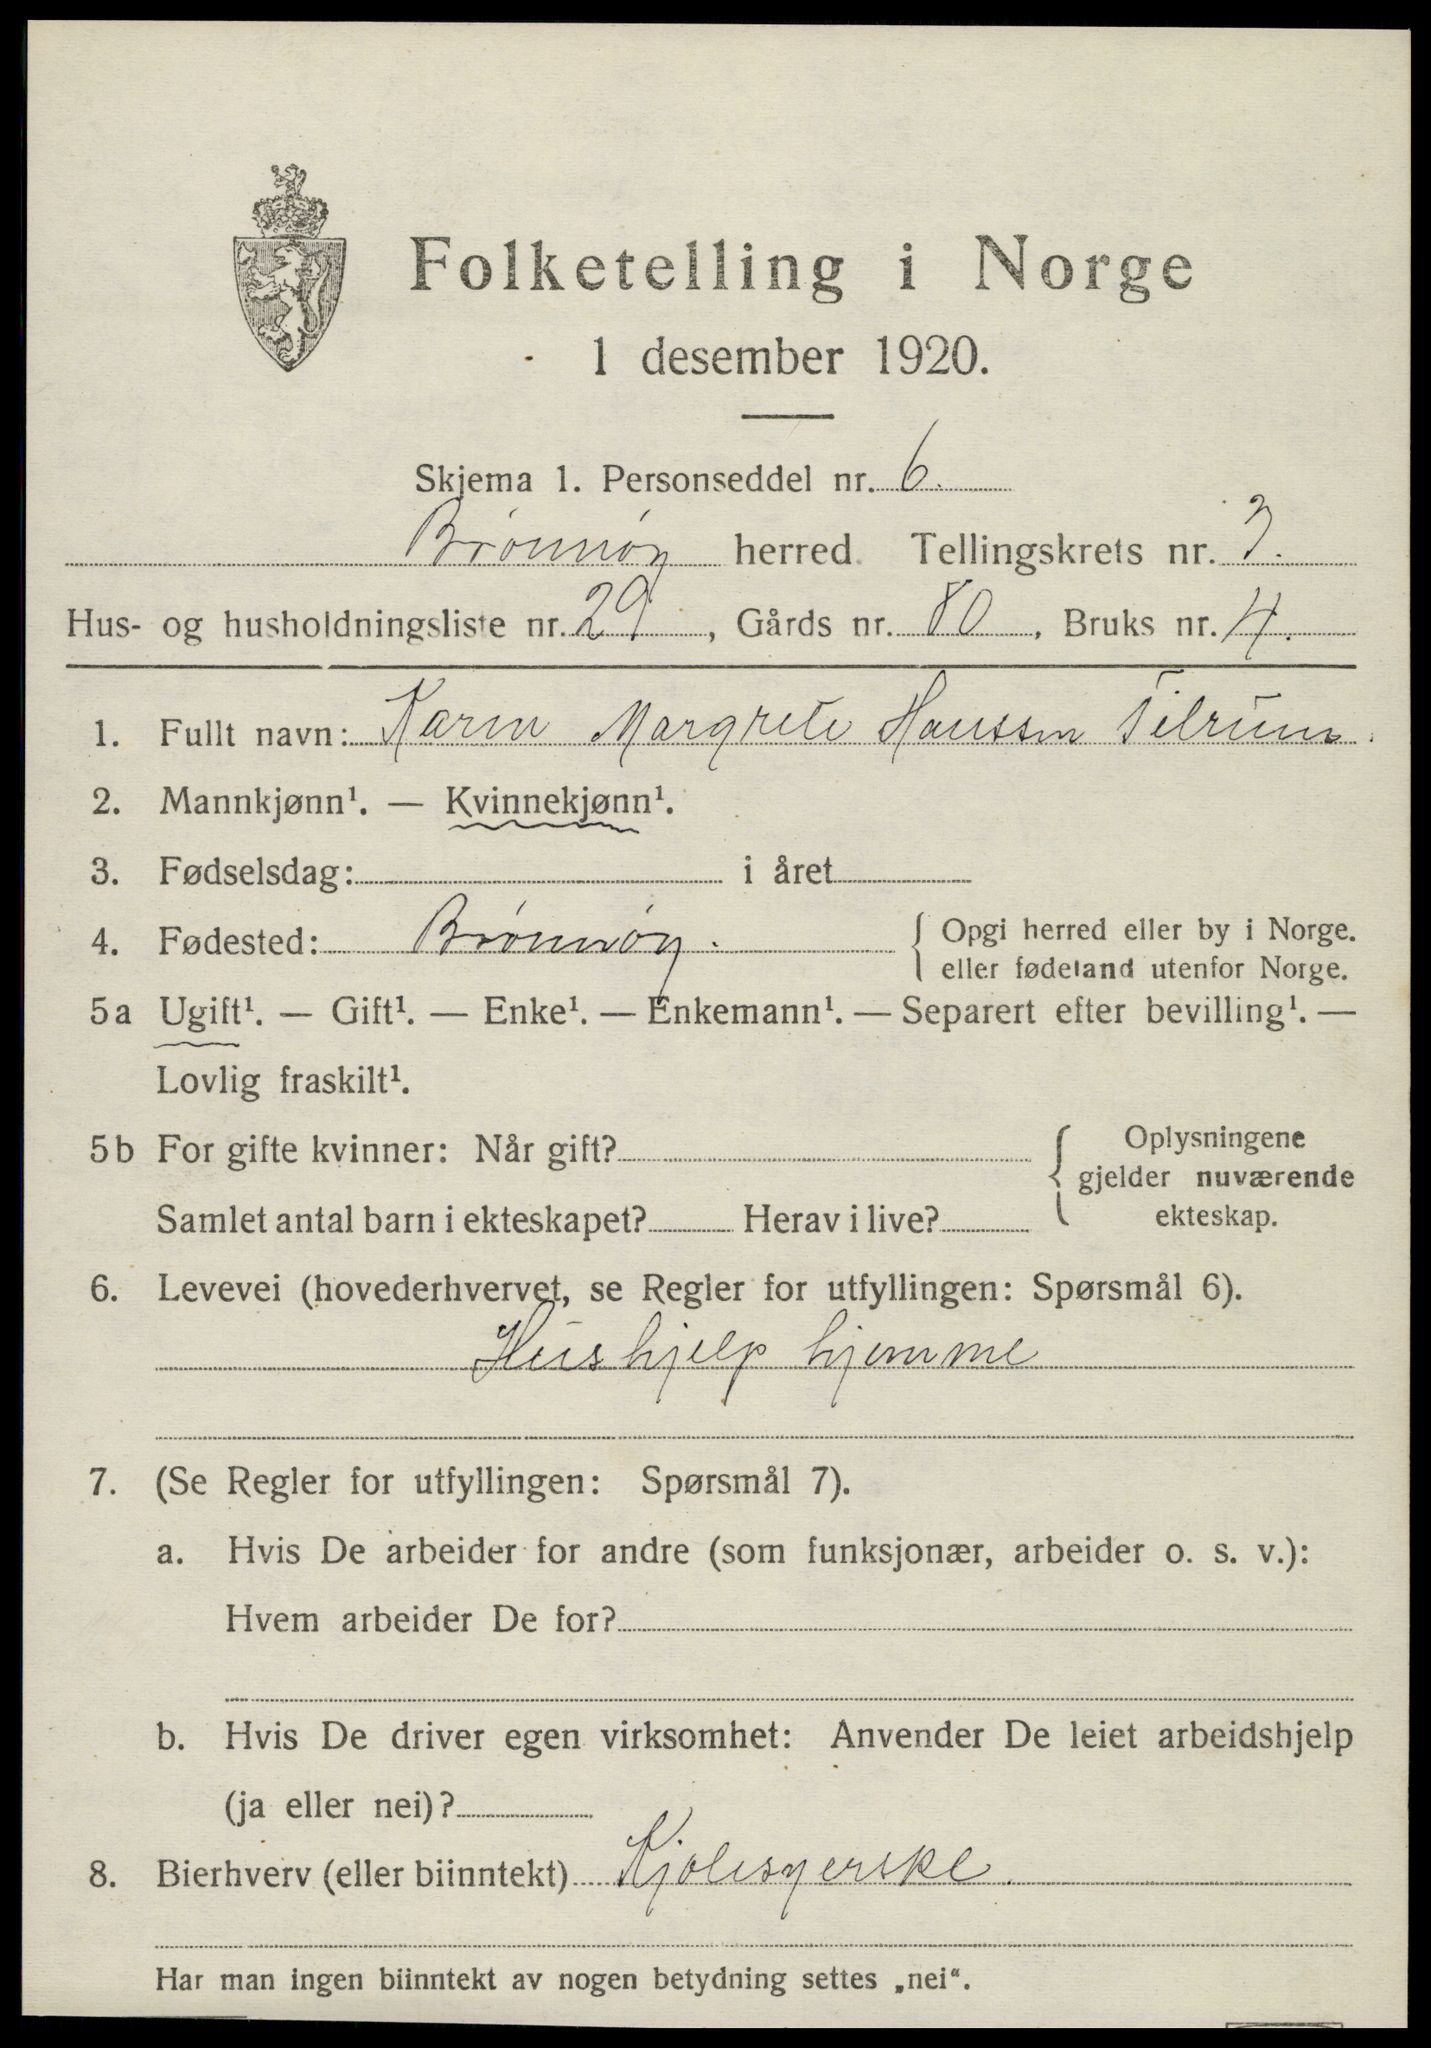 Folketelling i Norge
1 desember 1920.
Skjema 1. Personseddel nr. 6.
Brönnöy herred. Tellingskrets nr. 3.
Hus- og husholdningsliste nr. 29, Gårds nr. 80, Bruks nr. 4.
1. Fullt navn: Karen Margrete Hanssen Tilrum.
2. Mannkjønn¹. — Kvinnekjønn¹.
3. Fødselsdag: i året
4. Fødested: Brönnöy. { Opgi herred eller by i Norge.
eller fødeland utenfor Norge.
5a Ugift¹. — Gift¹. — Enke¹. — Enkemann¹. — Separert efter bevilling¹. —
Lovlig fraskilt¹.
5b For gifte kvinner: Når gift? { Oplysningene
gjelder nuværende
Samlet antal barn i ekteskapet? Herav i live? ekteskap.
6. Levevei (hovederhvervet, se Regler for utfyllingen: Spørsmål 6).
Hushjelp hjemme
7. (Se Regler for utfyllingen: Spørsmål 7).
a. Hvis De arbeider for andre (som funksjonær, arbeider o. s. v.):
Hvem arbeider De for?
b. Hvis De driver egen virksomhet: Anvender De leiet arbeidshjelp
(ja eller nei)?
8. Bierhverv (eller biinntekt) Kjolesyerske.
Har man ingen biinntekt av nogen betydning settes „nei“.